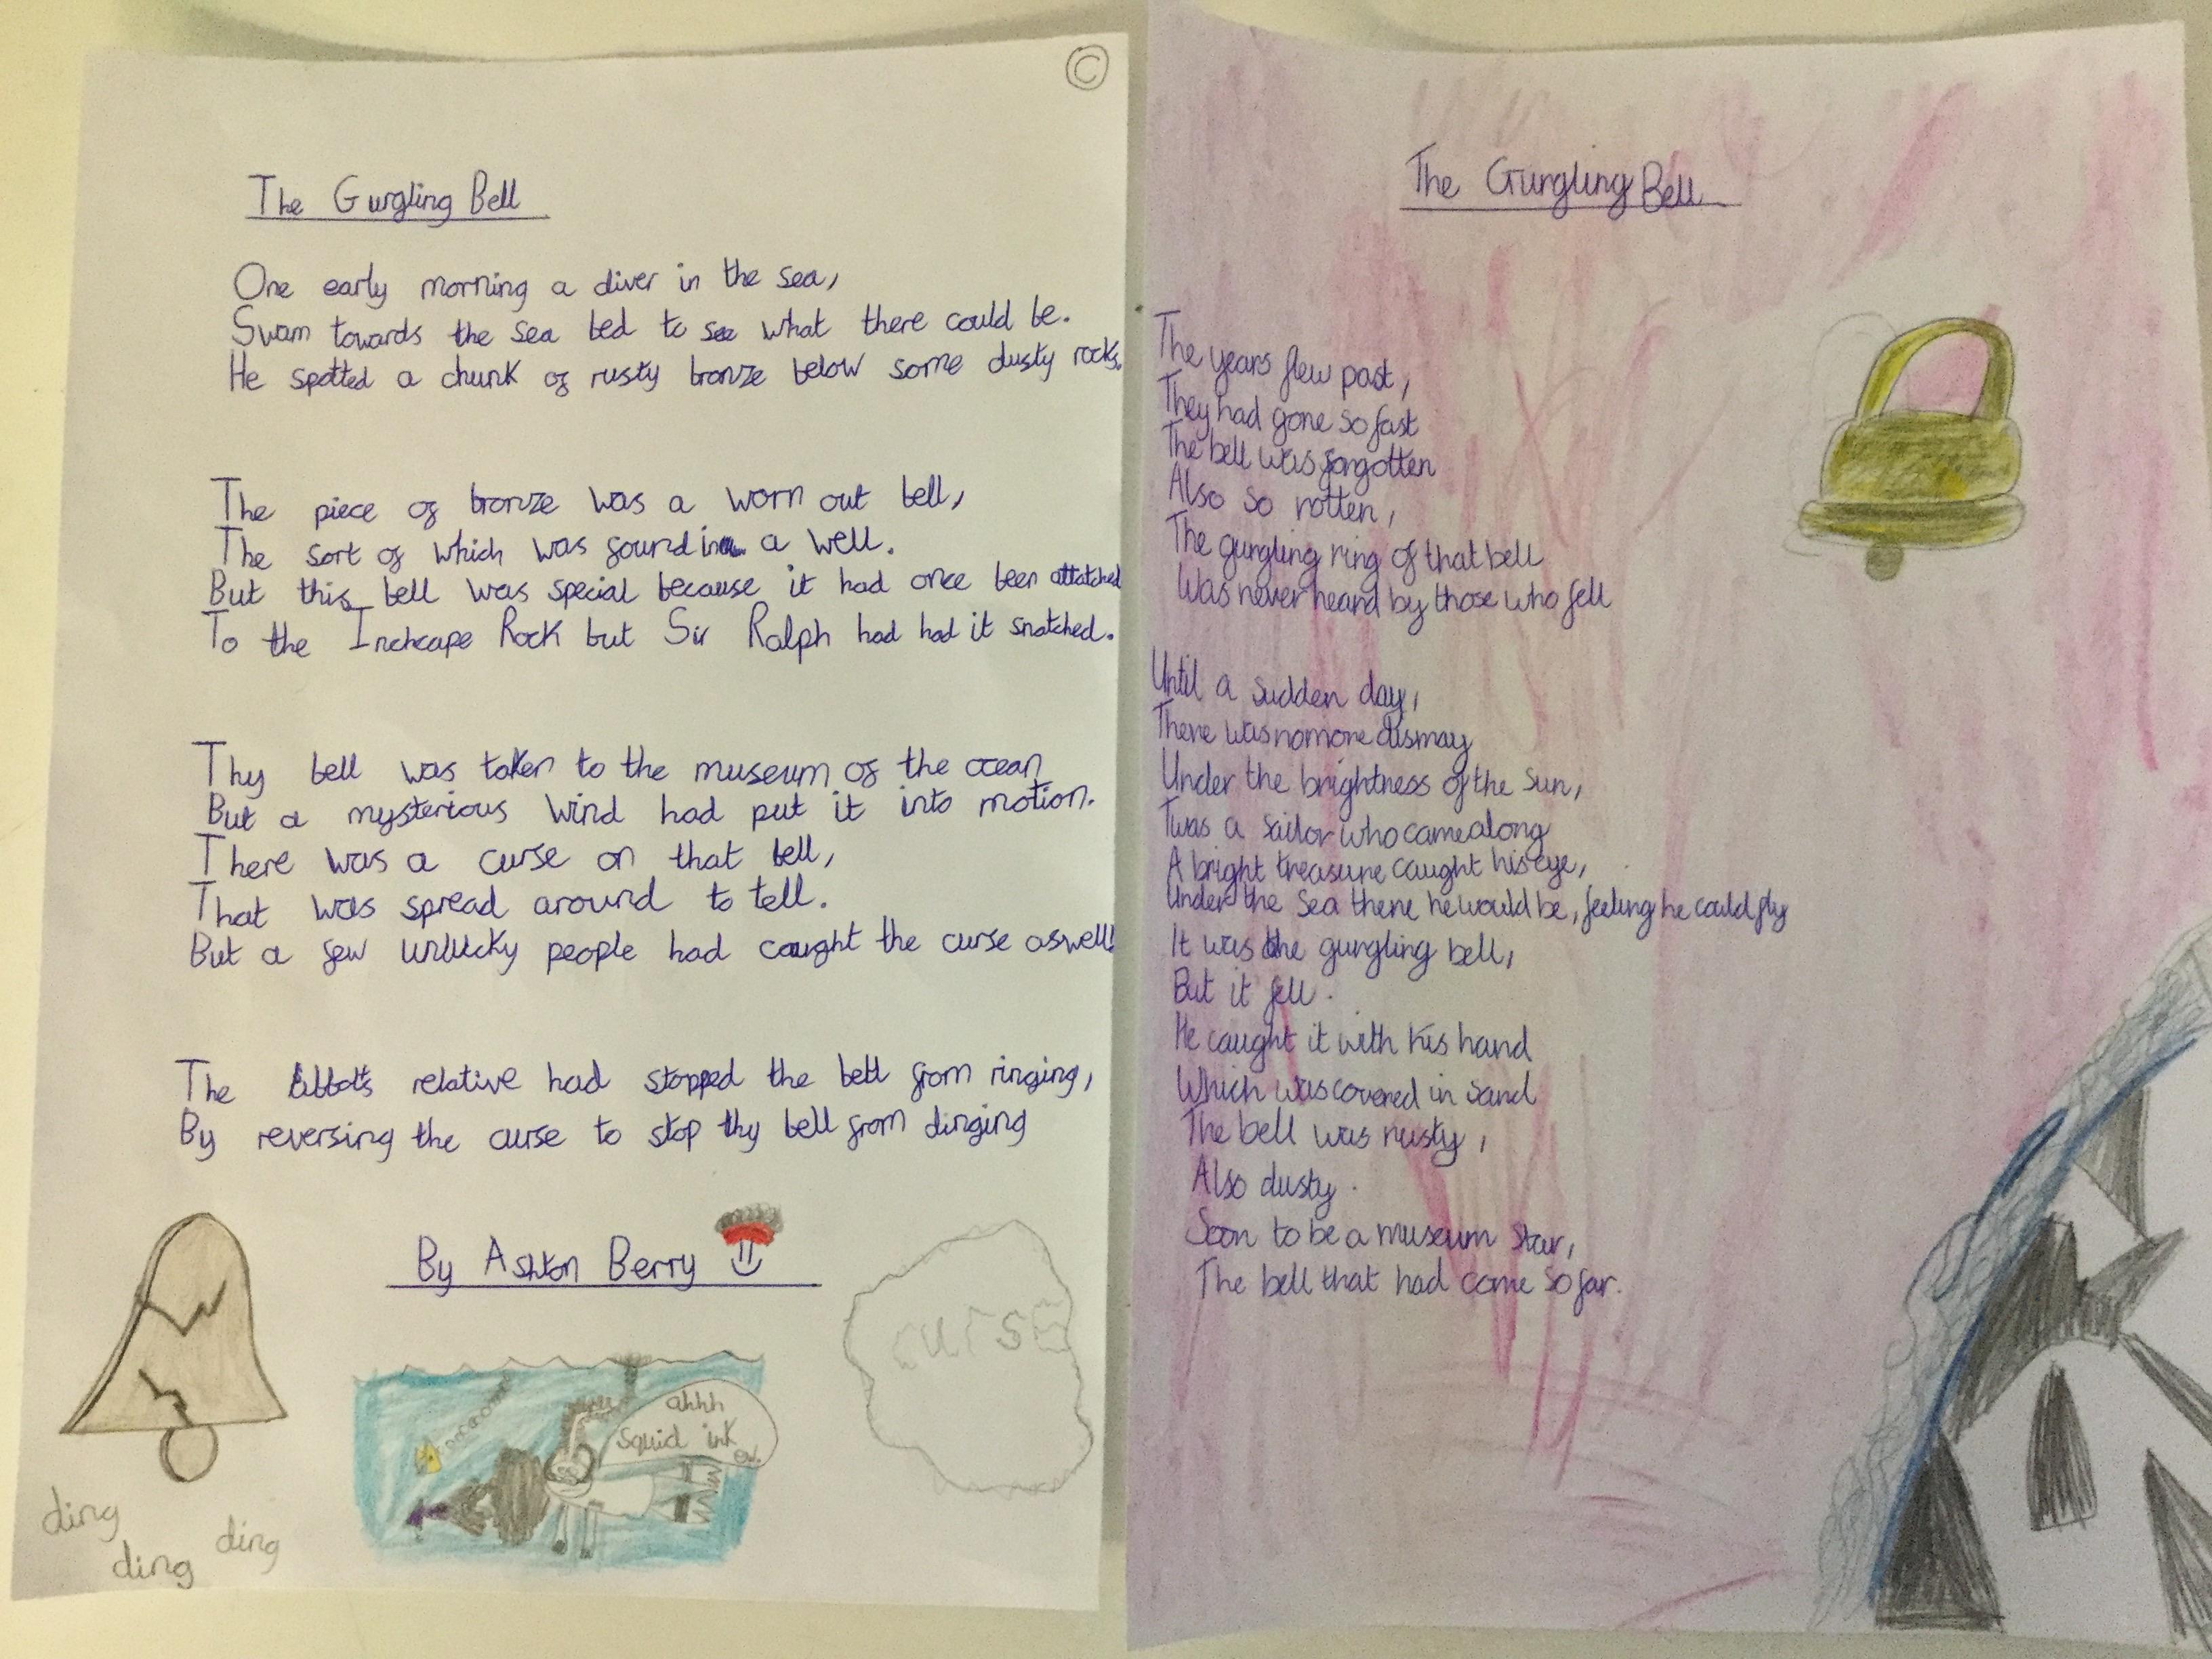 ©
The Gurgling Bell
One early morning a diver in the sea,
Swam towards the sea bed to see what there could be.
He spotted a chunk of rusty bronze below some dusty rocks.
The piece of bronze was a worn out bell,
The sort of which was found in a well.
But this bell was special because it had once been attatched
To the Inchcape Rock but Sir Ralph had had it snatched.
Thy bell was taken to the museum of the ocean
But a mysterious wind had put it into motion.
There was a curse on that bell,
That was spread around to tell.
But a few unlucky people had caught the curse aswell!
The Abbot's relative had stopped the bell from ringing,
By reversing the curse to stop thy bell from dinging
By Ashton Berry
curse
ahhh
squid ink
ding
ding
ding
The Gurgling Bell
The years flew past,
They had gone so fast
The bell was forgotten
Also so rotten,
The gurgling ring of that bell
Was never heard by those who fell
Until a sudden day,
There was no more dismay
Under the brightness of the sun,
Twas a sailor who came along
A bright treasure caught his eye,
Under the sea there he would be, feeling he could fly
It was the gurgling bell,
But it fell.
He caught it with his hand
Which was covered in sand
The bell was rusty,
Also dusty.
Soon to be a museum star,
The bell that had come so far.